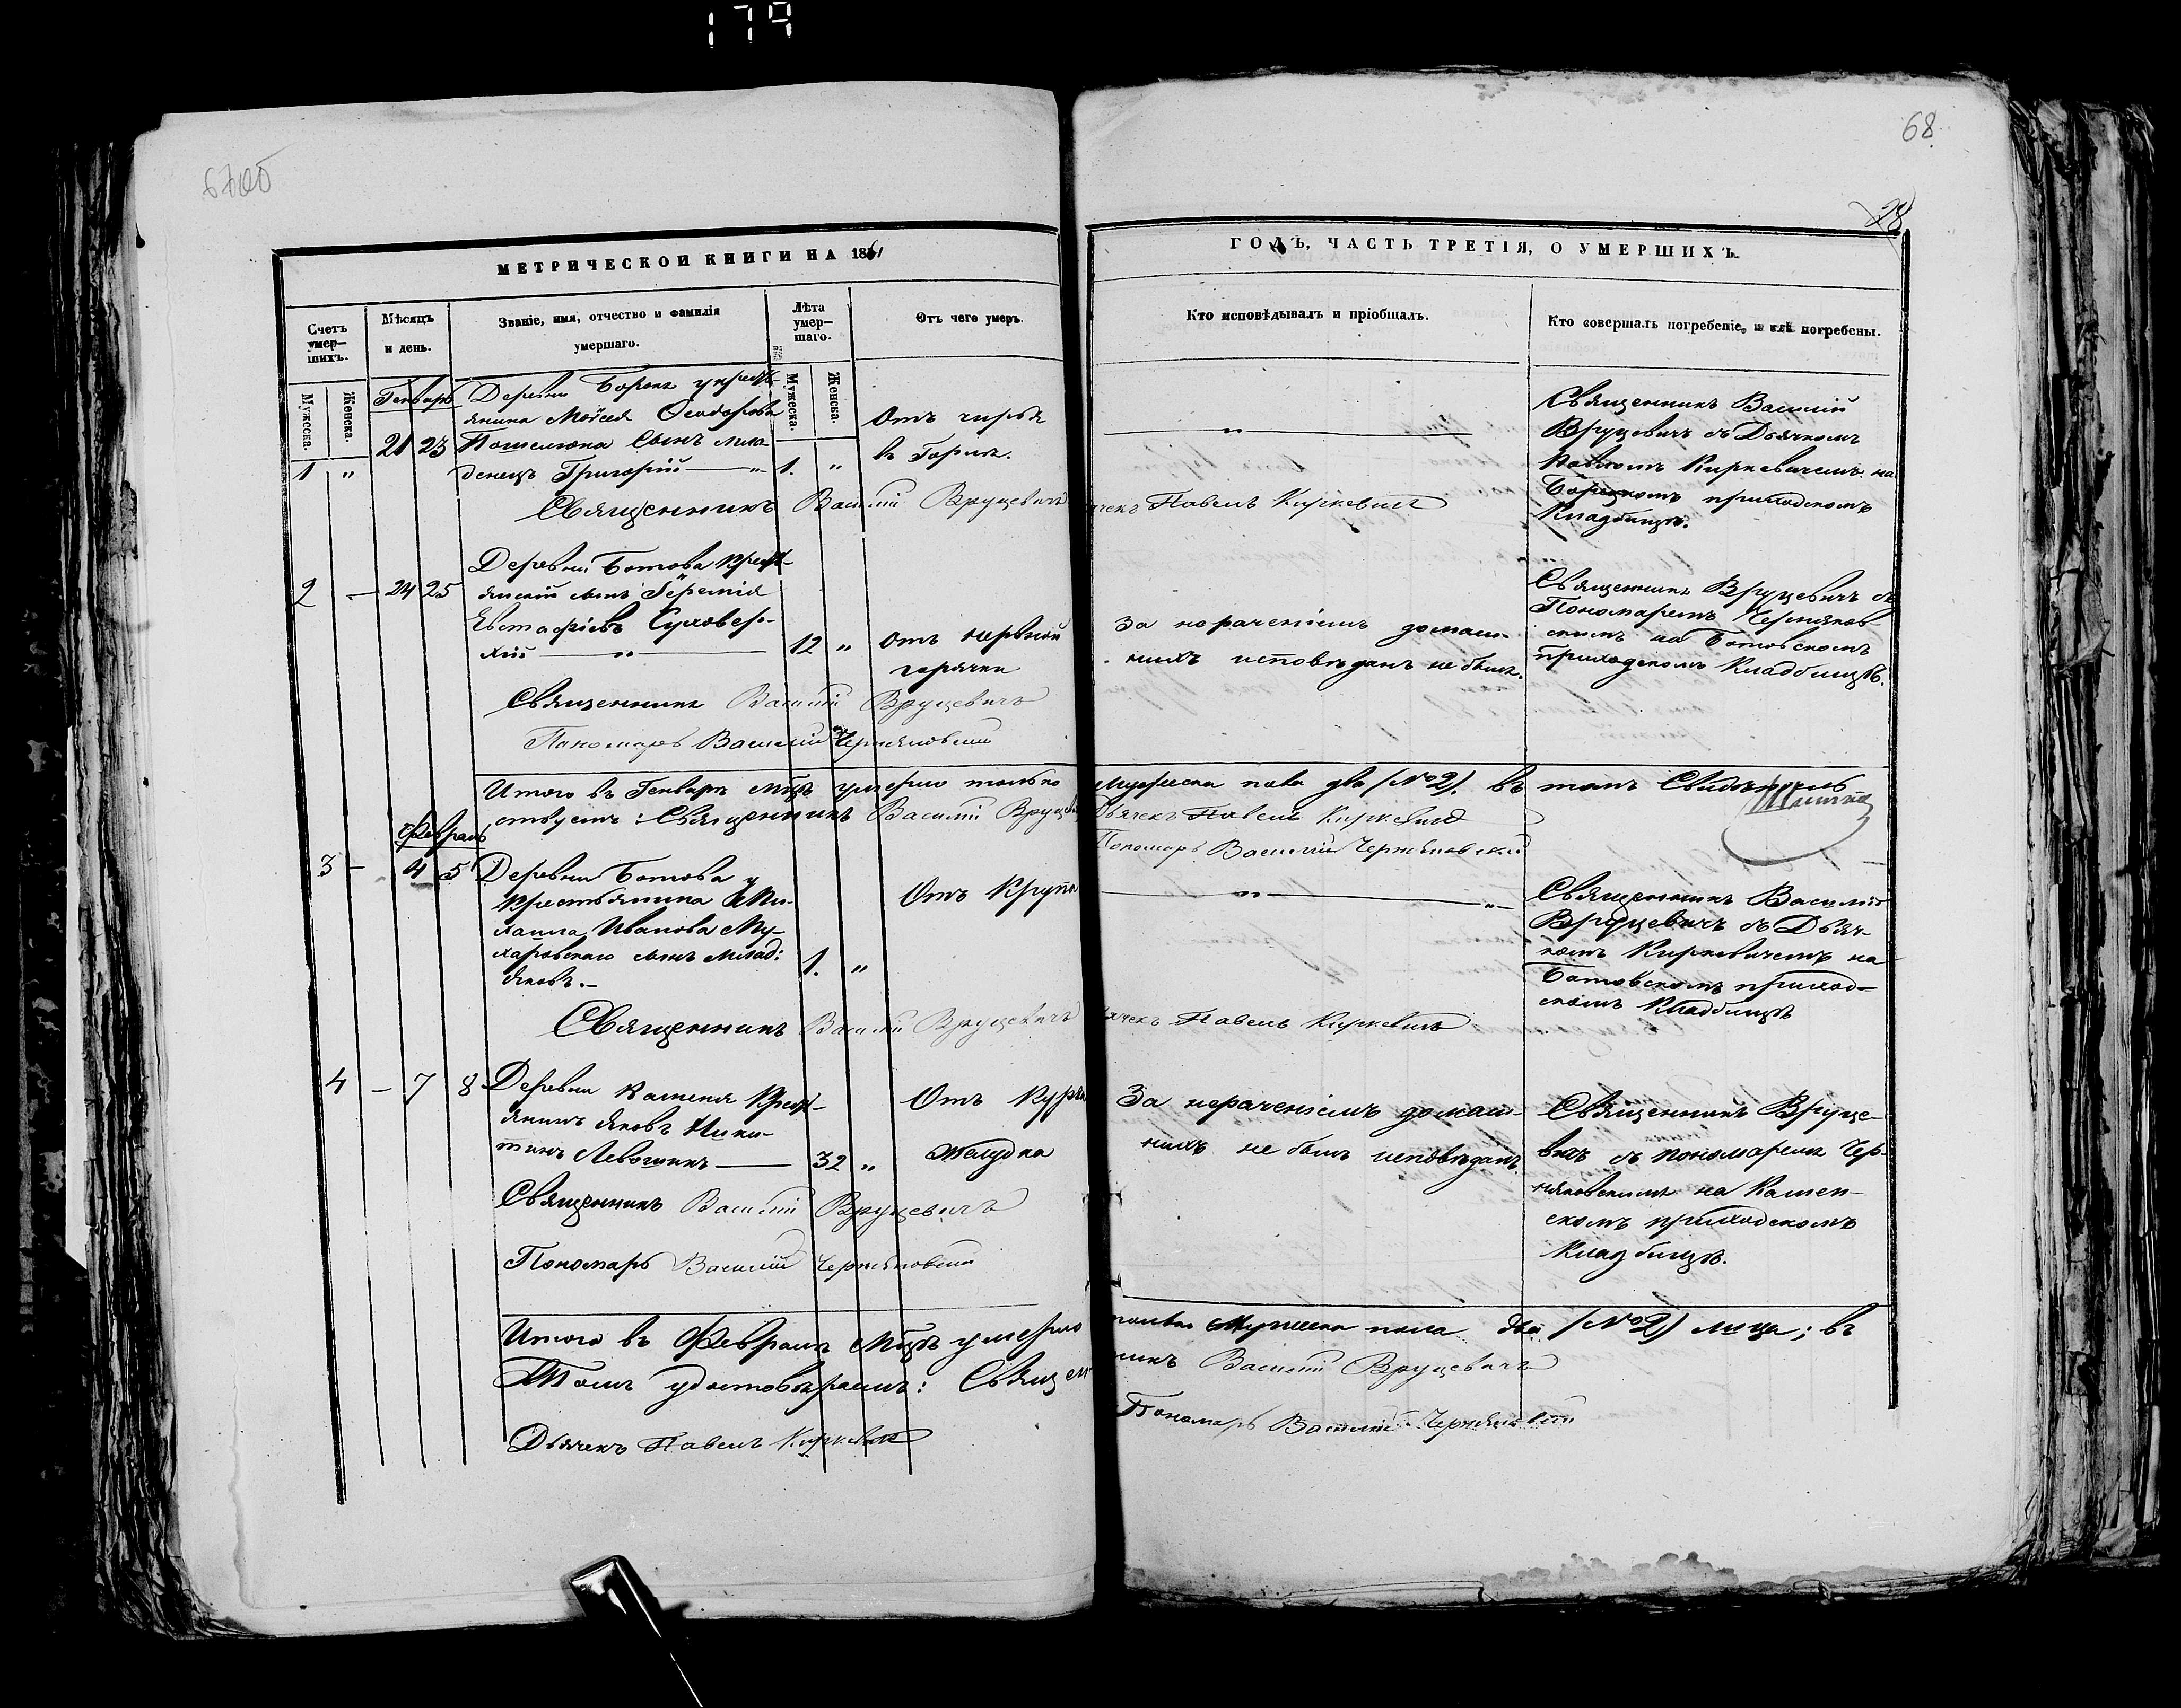 179
67об
68.
28
МЕТРИЧЕСКОЙ КНИГИ НА 1861
ГОДЪ, ЧАСТЬ ТРЕТІЯ, О УМЕРШИХЪ.
Счетъ умер-шихъ.
Мужеска.
Женска.
Мѣсяцъ и день.
Званіе, имя, отчество и фамилія умершаго.
Лѣта умер-шаго.
Мужеска.
Женска.
Отъ чего умеръ.
Кто исповѣдывалъ и пріобщалъ.
Кто совершалъ погребеніе, и гдѣ погребены.
Генварь
1 " 21 23
Деревни Борокъ у крест-
янина Моѵсея Ѳеодорова
сынъ мла
денецъ Григорій — " — 1. "
Отъ чирья
въ Горлѣ.
— " —
Священникъ Василій
Вруцевичъ съ Дьячкомъ
Павломъ Киркевичемъ на
Борецкомъ приходскомъ
Кладбищѣ.
Священникъ Василій Вруцевичъ
Павелъ Киркевичъ
2 — 24 25
Деревни Ботова крест-
янскій сынъ Іеремія
Евстафіевъ Суховер-
хій — " — 12 "
Отъ нервной
горячки
За нераченіемъ домаш-
нихъ исповѣданъ не былъ.
Священникъ Вруцевичъ съ
Пономаремъ Черняков-
скимъ на Ботовскомъ
приходскомъ Кладбищѣ.
Священникъ Василій Вруцевичъ
Пономарь Василій Черняковскій
Итого въ Генварѣ мцѣ умерло только
мужеска пола два (№2). въ томъ Свидѣтель
ствуетъ: Священникъ Василій Вруцевичъ
Дьячекъ Павелъ Киркевичъ
Пономарь Василій Черняковскій
Февраль
3 — 4 5
Деревни Ботова у
крестьянина Ми-
хаила Иванова Му-
харовскаго сынъ млад:
Яковъ. — 1. "
Отъ Крупа
— " — "
Священникъ Василій
Вруцевичъ съ Дьяч-
комъ Киркевичемъ на
Ботовскомъ приход-
скомъ Кладбищѣ
Священникъ Василій Вруцевичъ
Дьячекъ Павелъ Киркевичъ
4 — 7 8
Деревни Каменя Крест-
янинъ Яковъ Ники-
тинъ Левошкинъ — 32 "
Отъ
желудка
За нераченіемъ домаш-
нихъ не былъ исповѣданъ.
Священникъ Вруце-
вичъ съ пономаремъ Чер-
няковскимъ на Камен-
скомъ приходскомъ
Кладбищѣ.
Священникъ Василій Вруцевичъ
Пономарь Василій Черняковскій
Итого въ Февралѣ мцѣ умерло
только Мужеска пола два (№2) лица; въ
Томъ удостовѣряемъ: Священ
никъ Василій Вруцевичъ
Дьячекъ Павелъ Киркевичъ
Пономарь Василій Черняковскій